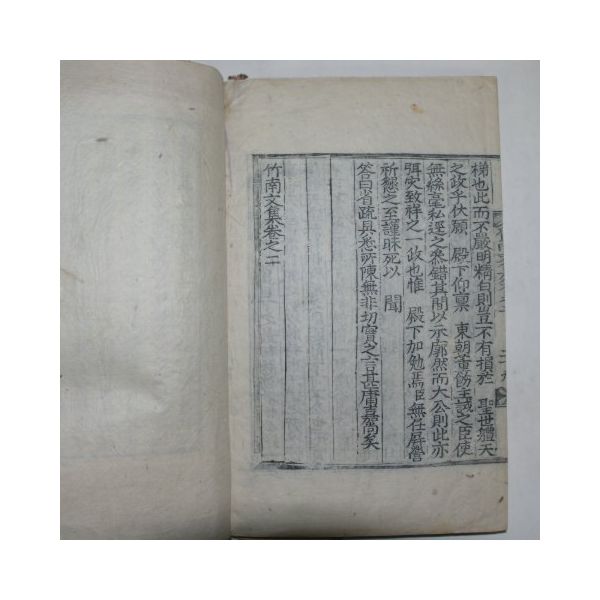 梯也此而不嚴明精白則豈不有損於 聖世體天
之政乎伏願 殿下仰稟 東朝董飭主試之臣使
無絲毫私逕之參錯其間以示廓然而大公則此亦
弭灾致祥之一政也惟 殿下加勉焉臣無任屛營
祈懇之至謹昧死以 聞
答曰省疏具悉所陳無非切實之言甚庸嘉尙矣
竹南文集卷之二